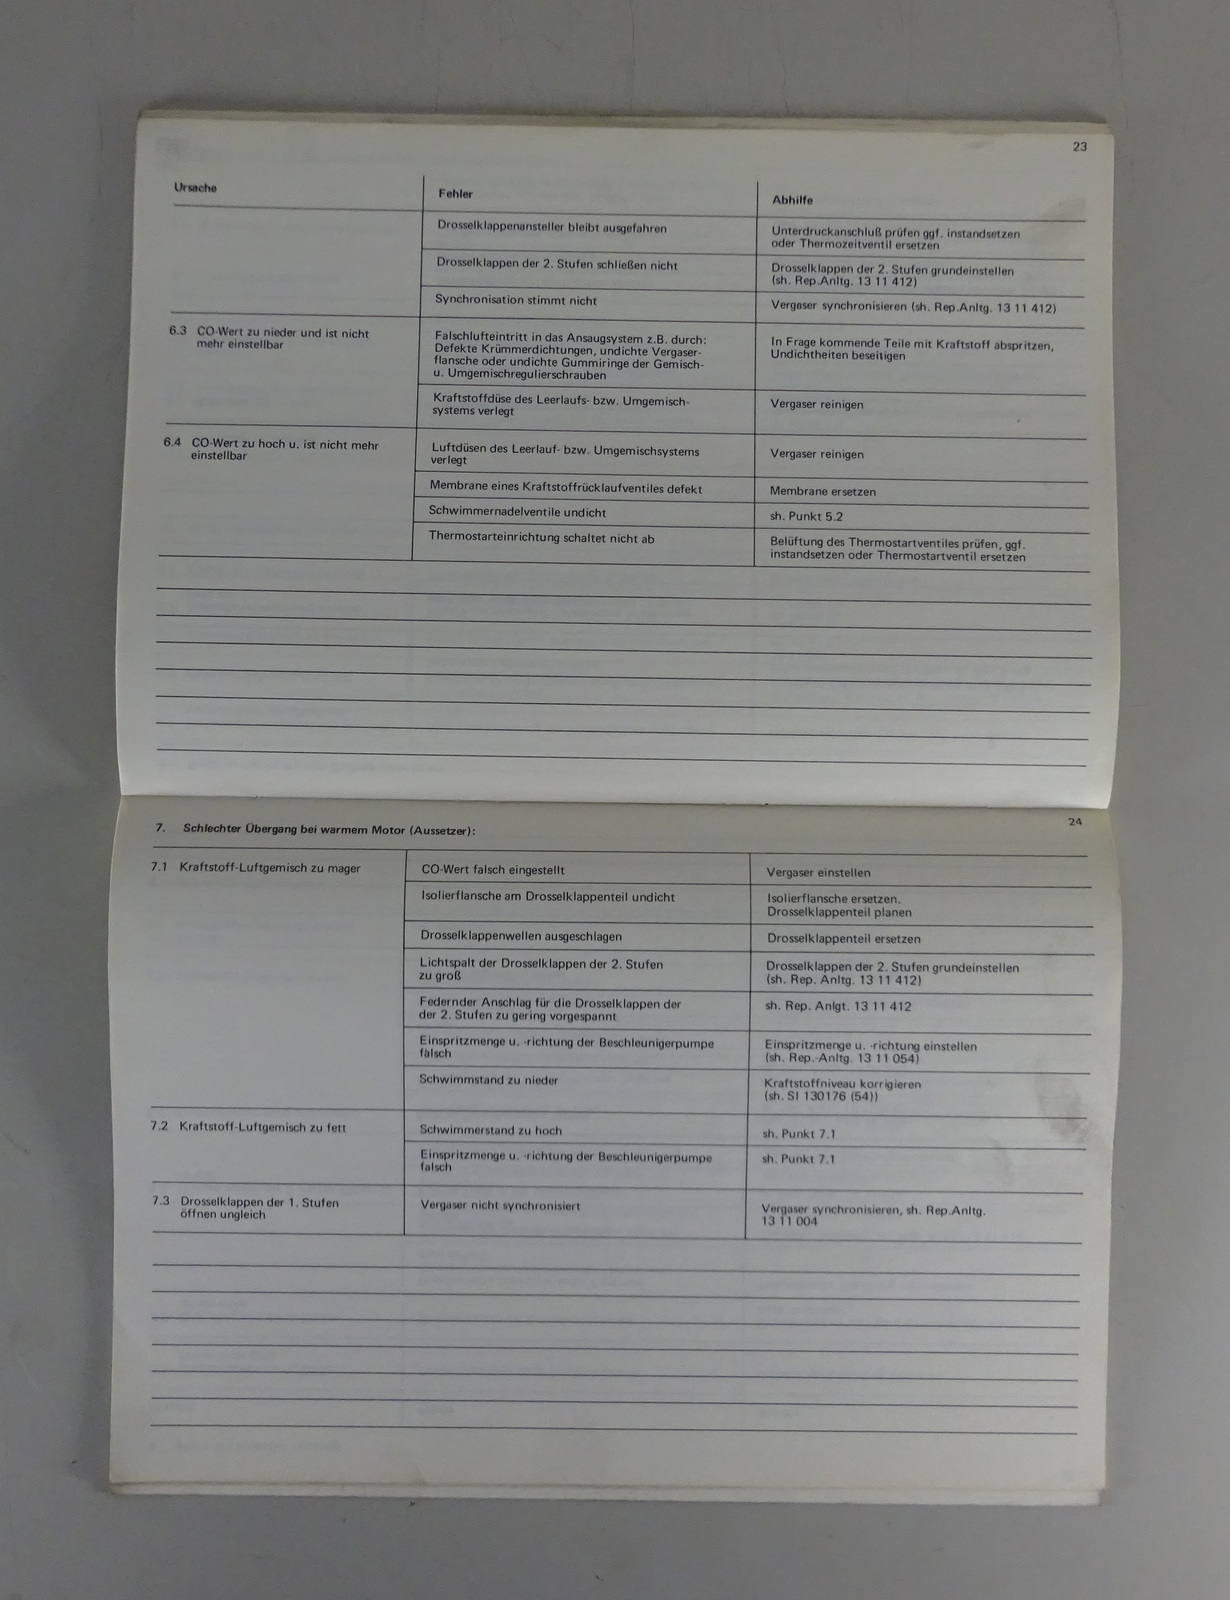 23
Ursache
Fehler
Abhilfe
Drosselklappenansteller bleibt ausgefahren
Unterdruckanschluß prüfen ggf. instandsetzen
oder Thermozeitventil ersetzen
Drosselklappen der 2. Stufen schließen nicht
Drosselklappen der 2. Stufen grundeinstellen
(sh. Rep.Anltg. 13 11 412)
Synchronisation stimmt nicht
Vergaser synchronisieren (sh. Rep.Anltg. 13 11 412)
6.3 CO-Wert zu nieder und ist nicht
mehr einstellbar
Falschlufteintritt in das Ansaugsystem z.B. durch:
Defekte Krümmerdichtungen, undichte Vergaser-
flansche oder undichte Gummiringe der Gemisch-
u. Umgemischregulierschrauben
In Frage kommende Teile mit Kraftstoff abspritzen,
Undichtheiten beseitigen
Kraftstoffdüse des Leerlaufs- bzw. Umgemisch-
systems verlegt
Vergaser reinigen
6.4 CO-Wert zu hoch u. ist nicht mehr
einstellbar
Luftdüsen des Leerlauf- bzw. Umgemischsystems
verlegt
Vergaser reinigen
Membrane eines Kraftstoffrücklaufventiles defekt
Membrane ersetzen
Schwimmernadelventile undicht
sh. Punkt 5.2
Thermostarteinrichtung schaltet nicht ab
Belüftung des Thermostartventiles prüfen, ggf.
instandsetzen oder Thermostartventil ersetzen
24
7. Schlechter Übergang bei warmem Motor (Aussetzer):
7.1 Kraftstoff-Luftgemisch zu mager
CO-Wert falsch eingestellt
Vergaser einstellen
Isolierflansche am Drosselklappenteil undicht
Isolierflansche ersetzen.
Drosselklappenteil planen
Drosselklappenwellen ausgeschlagen
Drosselklappenteil ersetzen
Lichtspalt der Drosselklappen der 2. Stufen
zu groß
Drosselklappen der 2. Stufen grundeinstellen
(sh. Rep. Anltg. 13 11 412)
Federnder Anschlag für die Drosselklappen der
der 2. Stufen zu gering vorgespannt
sh. Rep. Anlgt. 13 11 412
Einspritzmenge u. -richtung der Beschleunigerpumpe
falsch
Einspritzmenge u. -richtung einstellen
(sh. Rep.-Anltg. 13 11 054)
Schwimmstand zu nieder
Kraftstoffniveau korrigieren
(sh. SI 130176 (54))
7.2 Kraftstoff-Luftgemisch zu fett
Schwimmerstand zu hoch
sh. Punkt 7.1
Einspritzmenge u. -richtung der Beschleunigerpumpe
falsch
sh. Punkt 7.1
7.3 Drosselklappen der 1. Stufen
öffnen ungleich
Vergaser nicht synchronisiert
Vergaser synchronisieren, sh. Rep.Anltg.
13 11 004